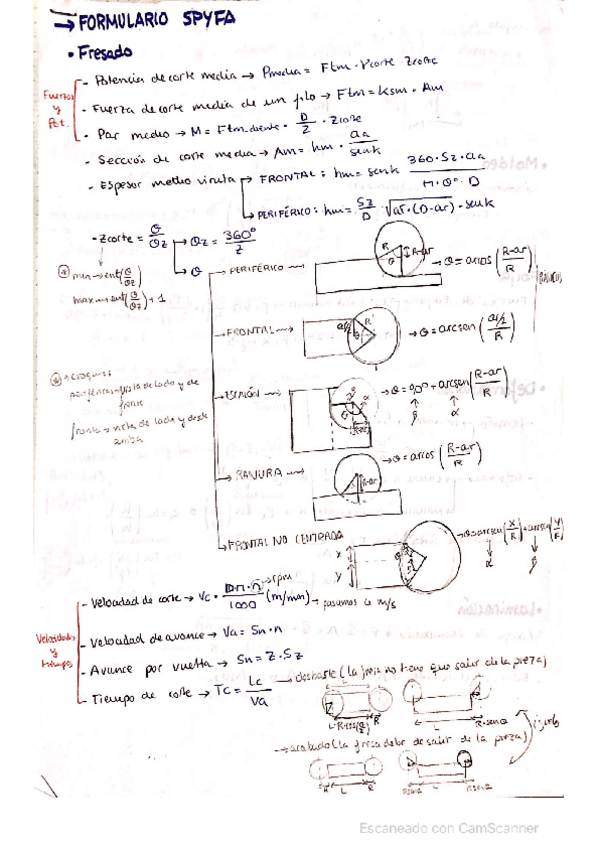 → FORMULARIO SPYFA
• Fresado
Fuerzas y Pot.
- Potencia de corte media → Pmedia = Ftm · Vcorte · Zcorte
- Fuerza de corte media de un filo → Ftm = Ksm · Am
- Par medio → M = Ftm.diente · D/2 · Zcorte
- Sección de corte media → Am = hm · aa/senk
- Espesor medio viruta → FRONTAL: hm = senk 360·Sz·aa/Π·θ°·D
→ PERIFÉRICO: hm = Sz/D · √ar·(D-ar) · senk
- Zcorte = θ/θz → θz = 360°/z
→ θ
* min → ent(θ/θz)
max → ent(θ/θz) + 1
→ PERIFÉRICO → R θ R-ar → θ = arcos (R-ar/R)
→ FRONTAL → a/2 R θ → θ = arcsen (a/2/R)
* → croquis:
periféricas → vista de lado y de frente
frontal → vista de lado y desde arriba
θ = 90° + arcsen (R-ar/R)
β α
→ RANURA → R-ar → θ = arcos (R-ar/R)
→ FRONTAL NO CENTRADA
x
y
θ = arcsen (x/R) + arcsen (y/R)
α β
Velocidades y tiempos
- Velocidad de corte → Vc = D·Π·n/1000 (m/min) → pasamos a m/s
→ rpm
- Velocidad de avance → Va = Sn · n
- Avance por vuelta → Sn = Z · Sz
- Tiempo de corte → Tc = Lc/Va
→ desbaste (la fresa no tiene que salir de la pieza)
L
R
L
→ acabado (la fresa debe de salir de la pieza)
R L R
L
Escaneado con CamScanner